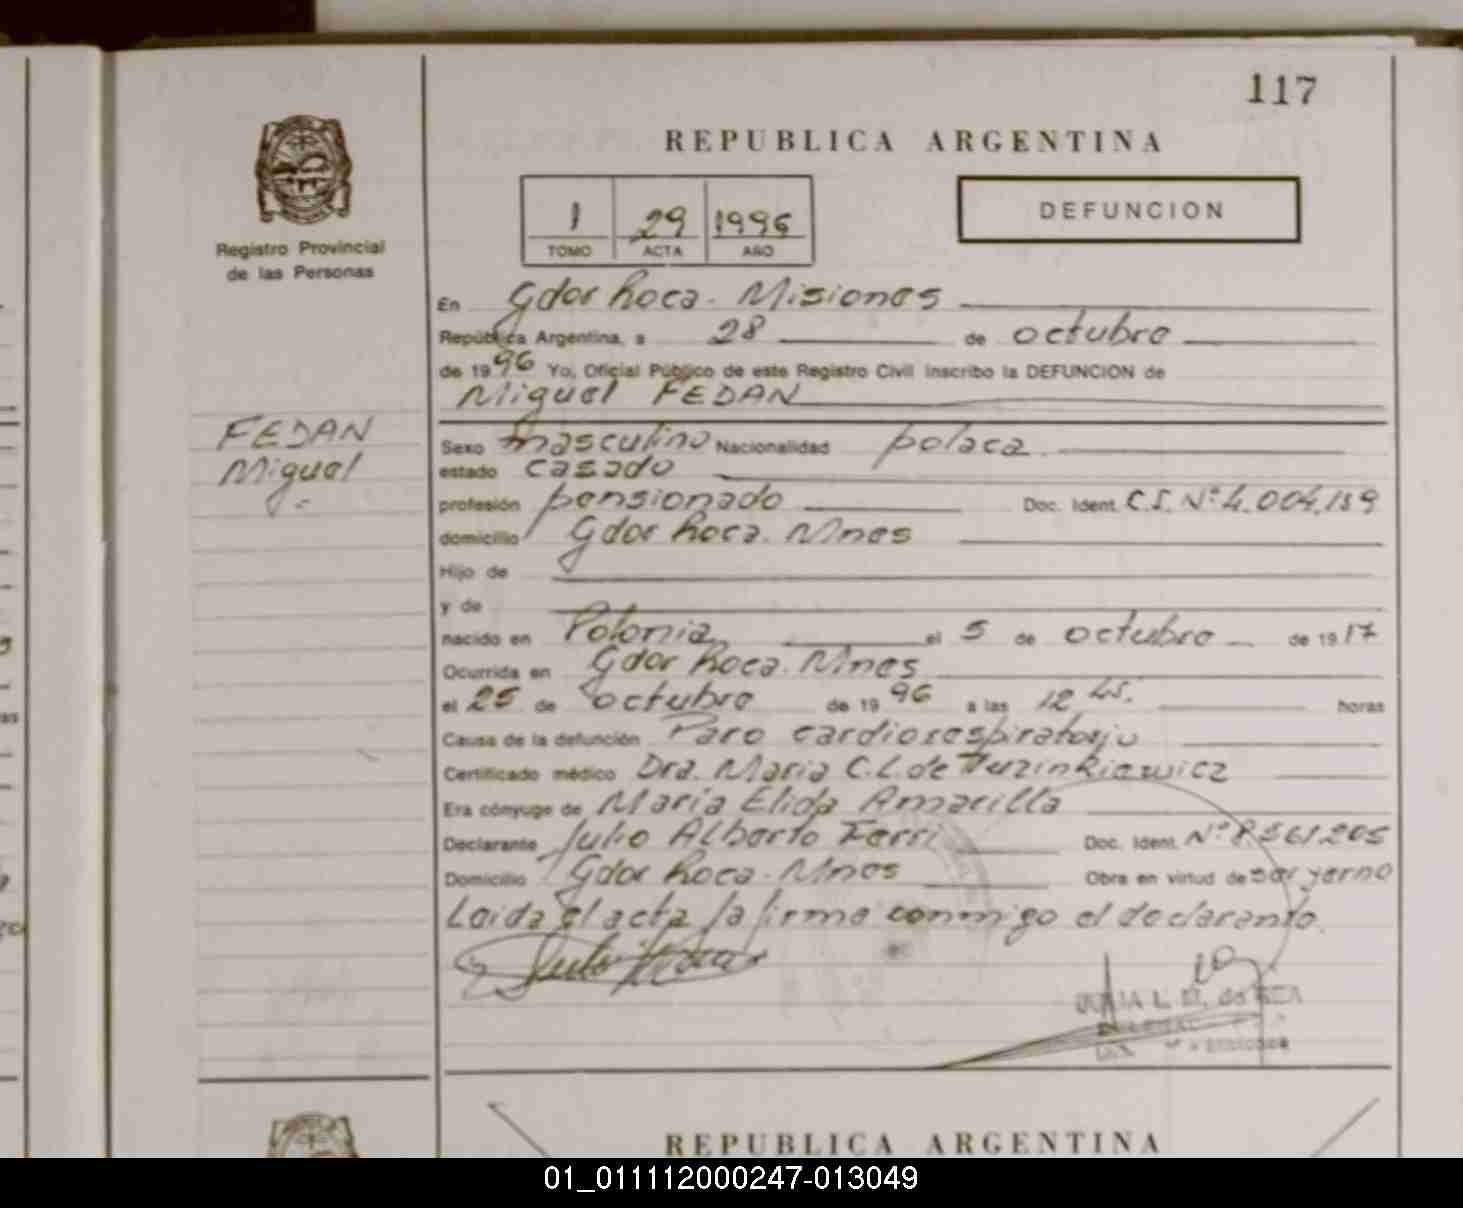 117
REPUBLICA ARGENTINA
1 29 1996
TOMO ACTA AÑO
DEFUNCION
Registro Provincial
de las Personas
En Gdor Roca. Misiones
República Argentina, a 28 de octubre
de 1996 Yo, Oficial Público de este Registro Civil inscribo la DEFUNCION de
Miguel FEDAN
FEDAN
Miguel
Sexo masculino Nacionalidad polaca
estado casado
profesión pensionado Doc. Ident. C.I. Nº 4.004.189
domicilio Gdor Roca. Mnes
Hijo de
y de
nacido en Polonia el 5 de octubre de 1917
Ocurrida en Gdor Roca. Mnes
el 25 de octubre de 1996 a las 12 hs. horas
Causa de la defunción Paro cardiorespiratorio
Certificado médico Dra. Maria C.L. de
Era cónyuge de María Elida Amarilla
Declarante Julio Alberto Ferri Doc. Ident. Nº 8.561.205
Domicilio Gdor Roca. Mnes Obra en virtud de ser yerno
Leida el acta la firma conmigo el declarante.
REPUBLICA ARGENTINA
01_011112000247-013049